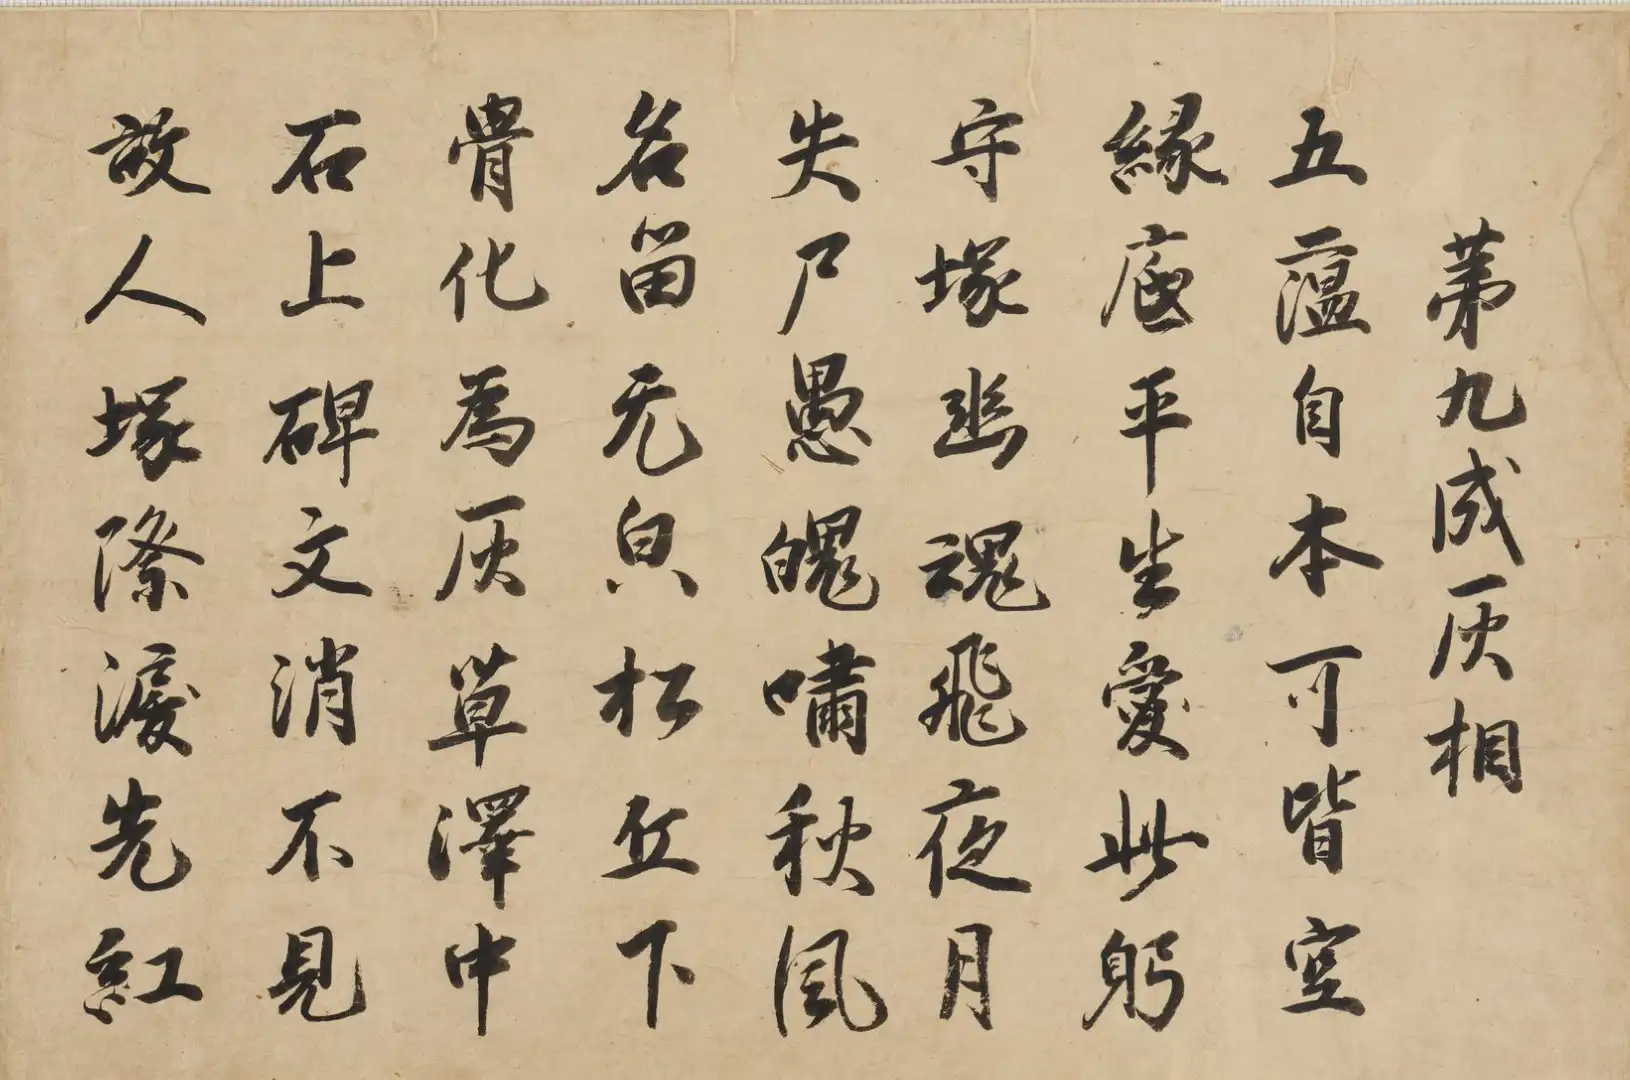 苐九成灰相
五薀自本可皆空
縁底平生愛此躬
守塚幽魂飛夜月
失尸愚魄嘯秋風
名留无㒵松丘下
骨化為灰草澤中
石上碑文消不見
故人塚際淚先紅